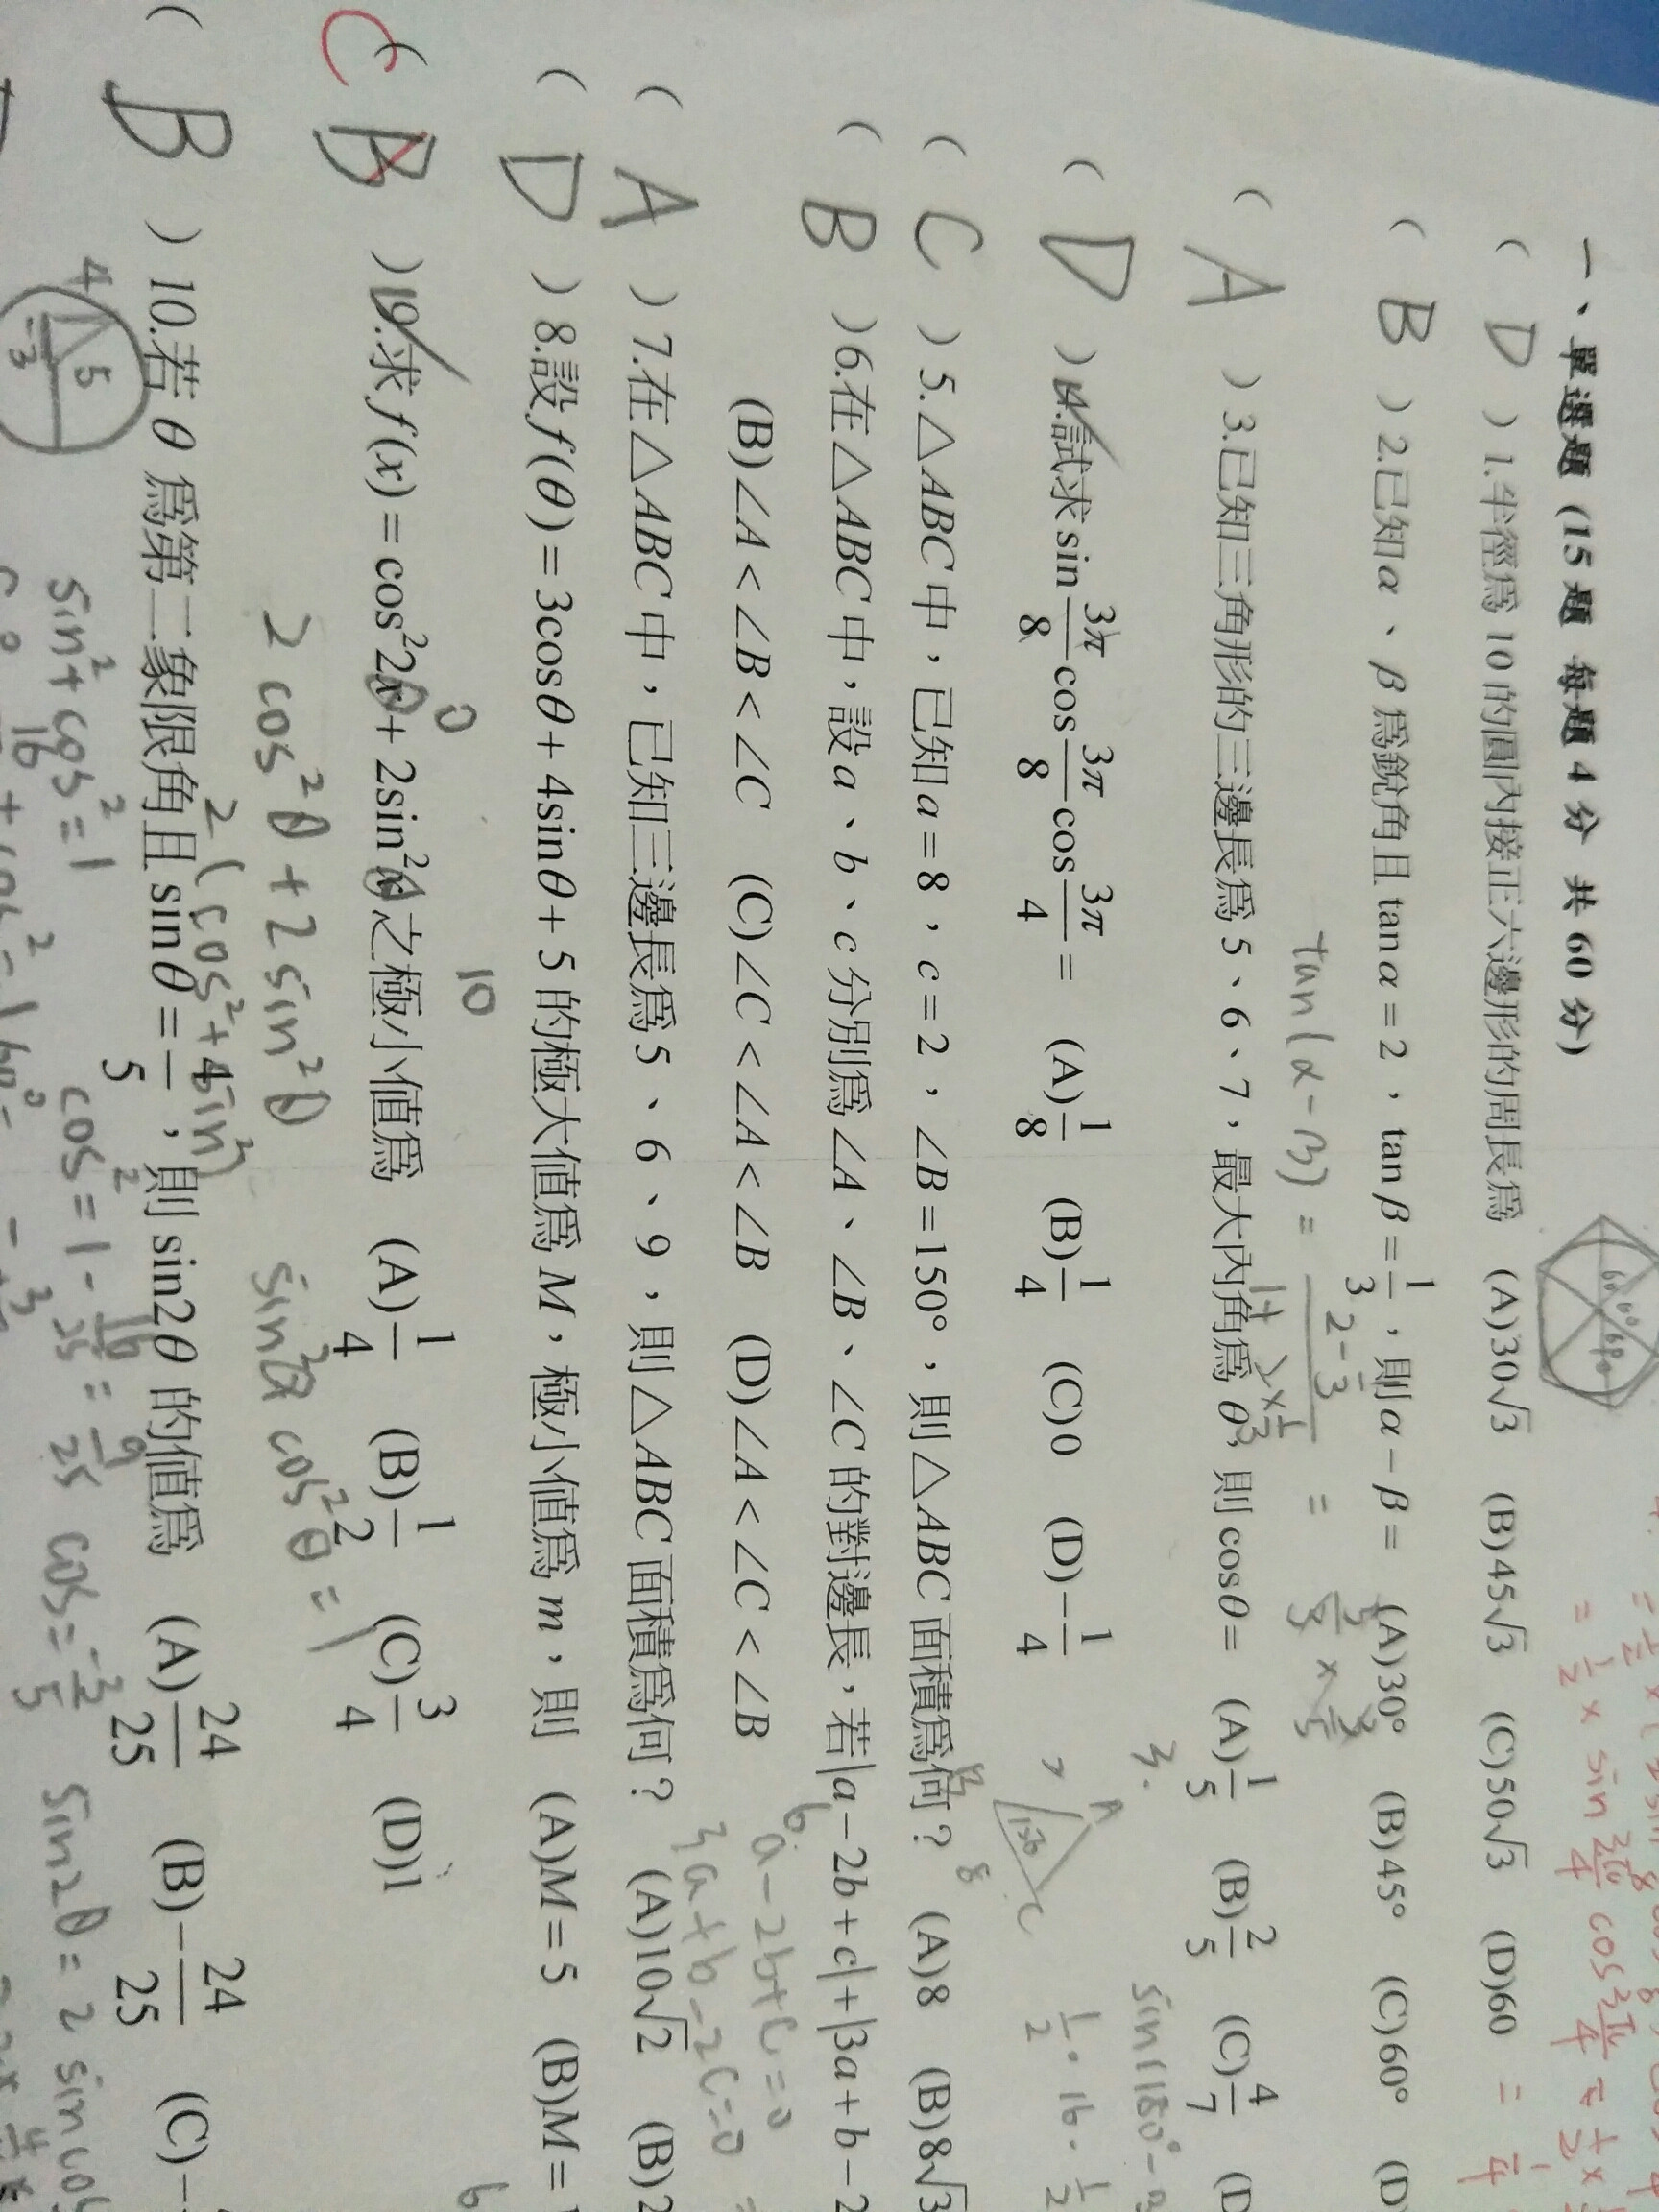 一、單選題 (15 題 每題 4 分 共 60 分)
( D ) 1.半徑為 10 的圓內接正六邊形的周長為 (A)30√3 (B)45√3 (C)50√3 (D)60
( B ) 2.已知α、β為銳角且 tanα=2，tanβ=1/3，則α−β= (A)30° (B)45° (C)60° (D)
tan(α-β) =
( A ) 3.已知三角形的三邊長為 5、6、7，最大內角為 θ，則 cosθ= (A)1/5 (B)2/5 (C)4/7 (D
( D ) 4.試求 sin3π/8 cos3π/8 cos3π/4 = (A)1/8 (B)1/4 (C)0 (D)−1/4
( C ) 5.△ABC中，已知a=8，c=2，∠B=150°，則△ABC面積為何？ (A)8 (B)8√3
( B ) 6.在△ABC中，設a、b、c分別為∠A、∠B、∠C的對邊長，若|a−2b+c|+|3a+b−2
a-2b+c=0
3a+b-2c=0
(B)∠A<∠B<∠C (C)∠C<∠A<∠B (D)∠A<∠C<∠B
( A ) 7.在△ABC中，已知三邊長為5、6、9，則△ABC面積為何？ (A)10√2 (B)2
( D ) 8.設f(θ)=3cosθ+4sinθ+5的極大值為M，極小值為m，則 (A)M=5 (B)M=
0 10
C
( B ) 9.求f(x)=cos²2x+2sin²x之極小值為 (A)1/4 (B)1/2 (C)3/4 (D)1
2cos²θ+2sin²θ
( B ) 10.若θ為第二象限角且sinθ=4/5，則sin2θ的值為 (A)24/25 (B)−24/25 (C)−
4 5 -3
sin²+cos²=1
cos²=1-16/25=9/25 cos=-3/5
sin2θ=2 sincos